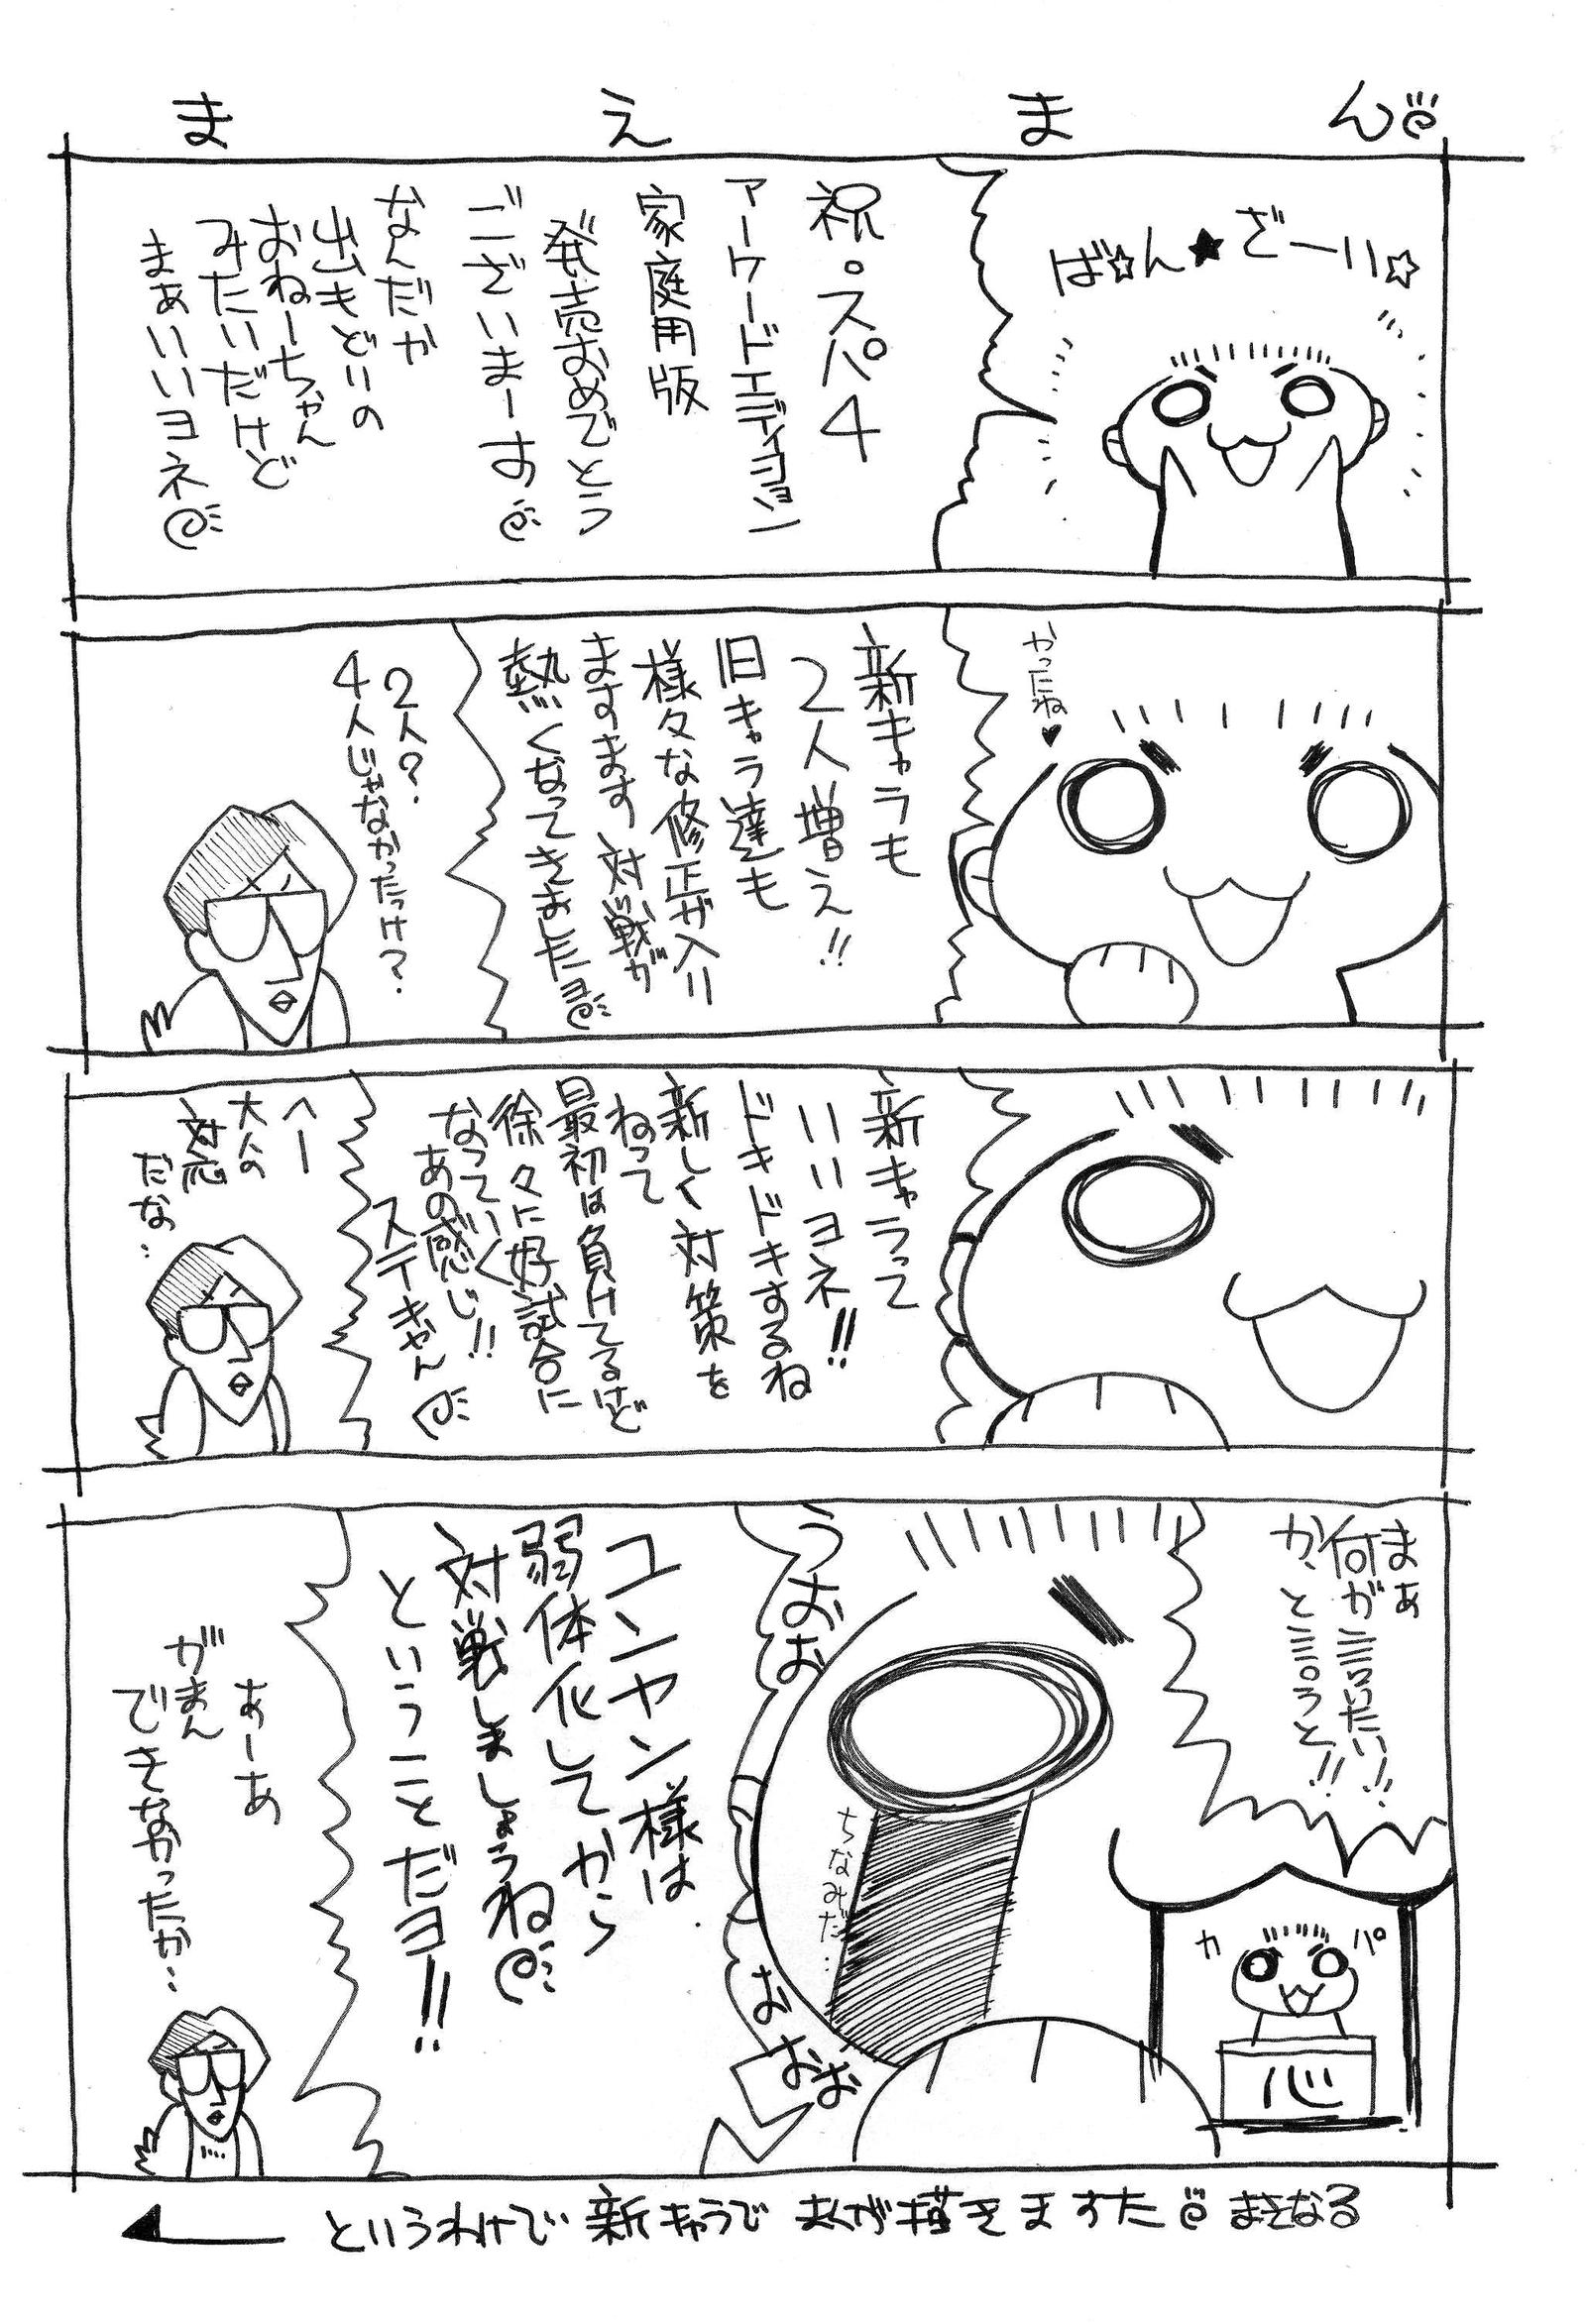 まえまん
ば☆ん★ざーい☆
祝。スパ4
アーケードエディション
家庭用版
発売おめでとう
ございまーす
なんだか
出もどりの
おねーちゃん
みたいだけど
まぁいいヨネ
かったね♥
新キャラも
2人増え!!
旧キャラ達も
様々な修正が入り
ますます対戦が
熱くなってきましたヨ
2人?
4人じゃなかったっけ?
新キャラって
いいヨネ!!
ドキドキするね
新しく対策を
ねって
最初は負けてるけど
徐々に好試合に
なっていく
あの感じ!!
ステキやん
へー
大人の
対応
だな…
まぁ
何が言いたい!!
か、と言うと!!
うおお
おおお
ちなみだ…
カパ
心
ユンヤン様は
弱体化してから
対戦しましょうね
ということだヨ!!
あーあ
がまん
できなかったか…
というわけで新キャラでまんが描きますた まきなる